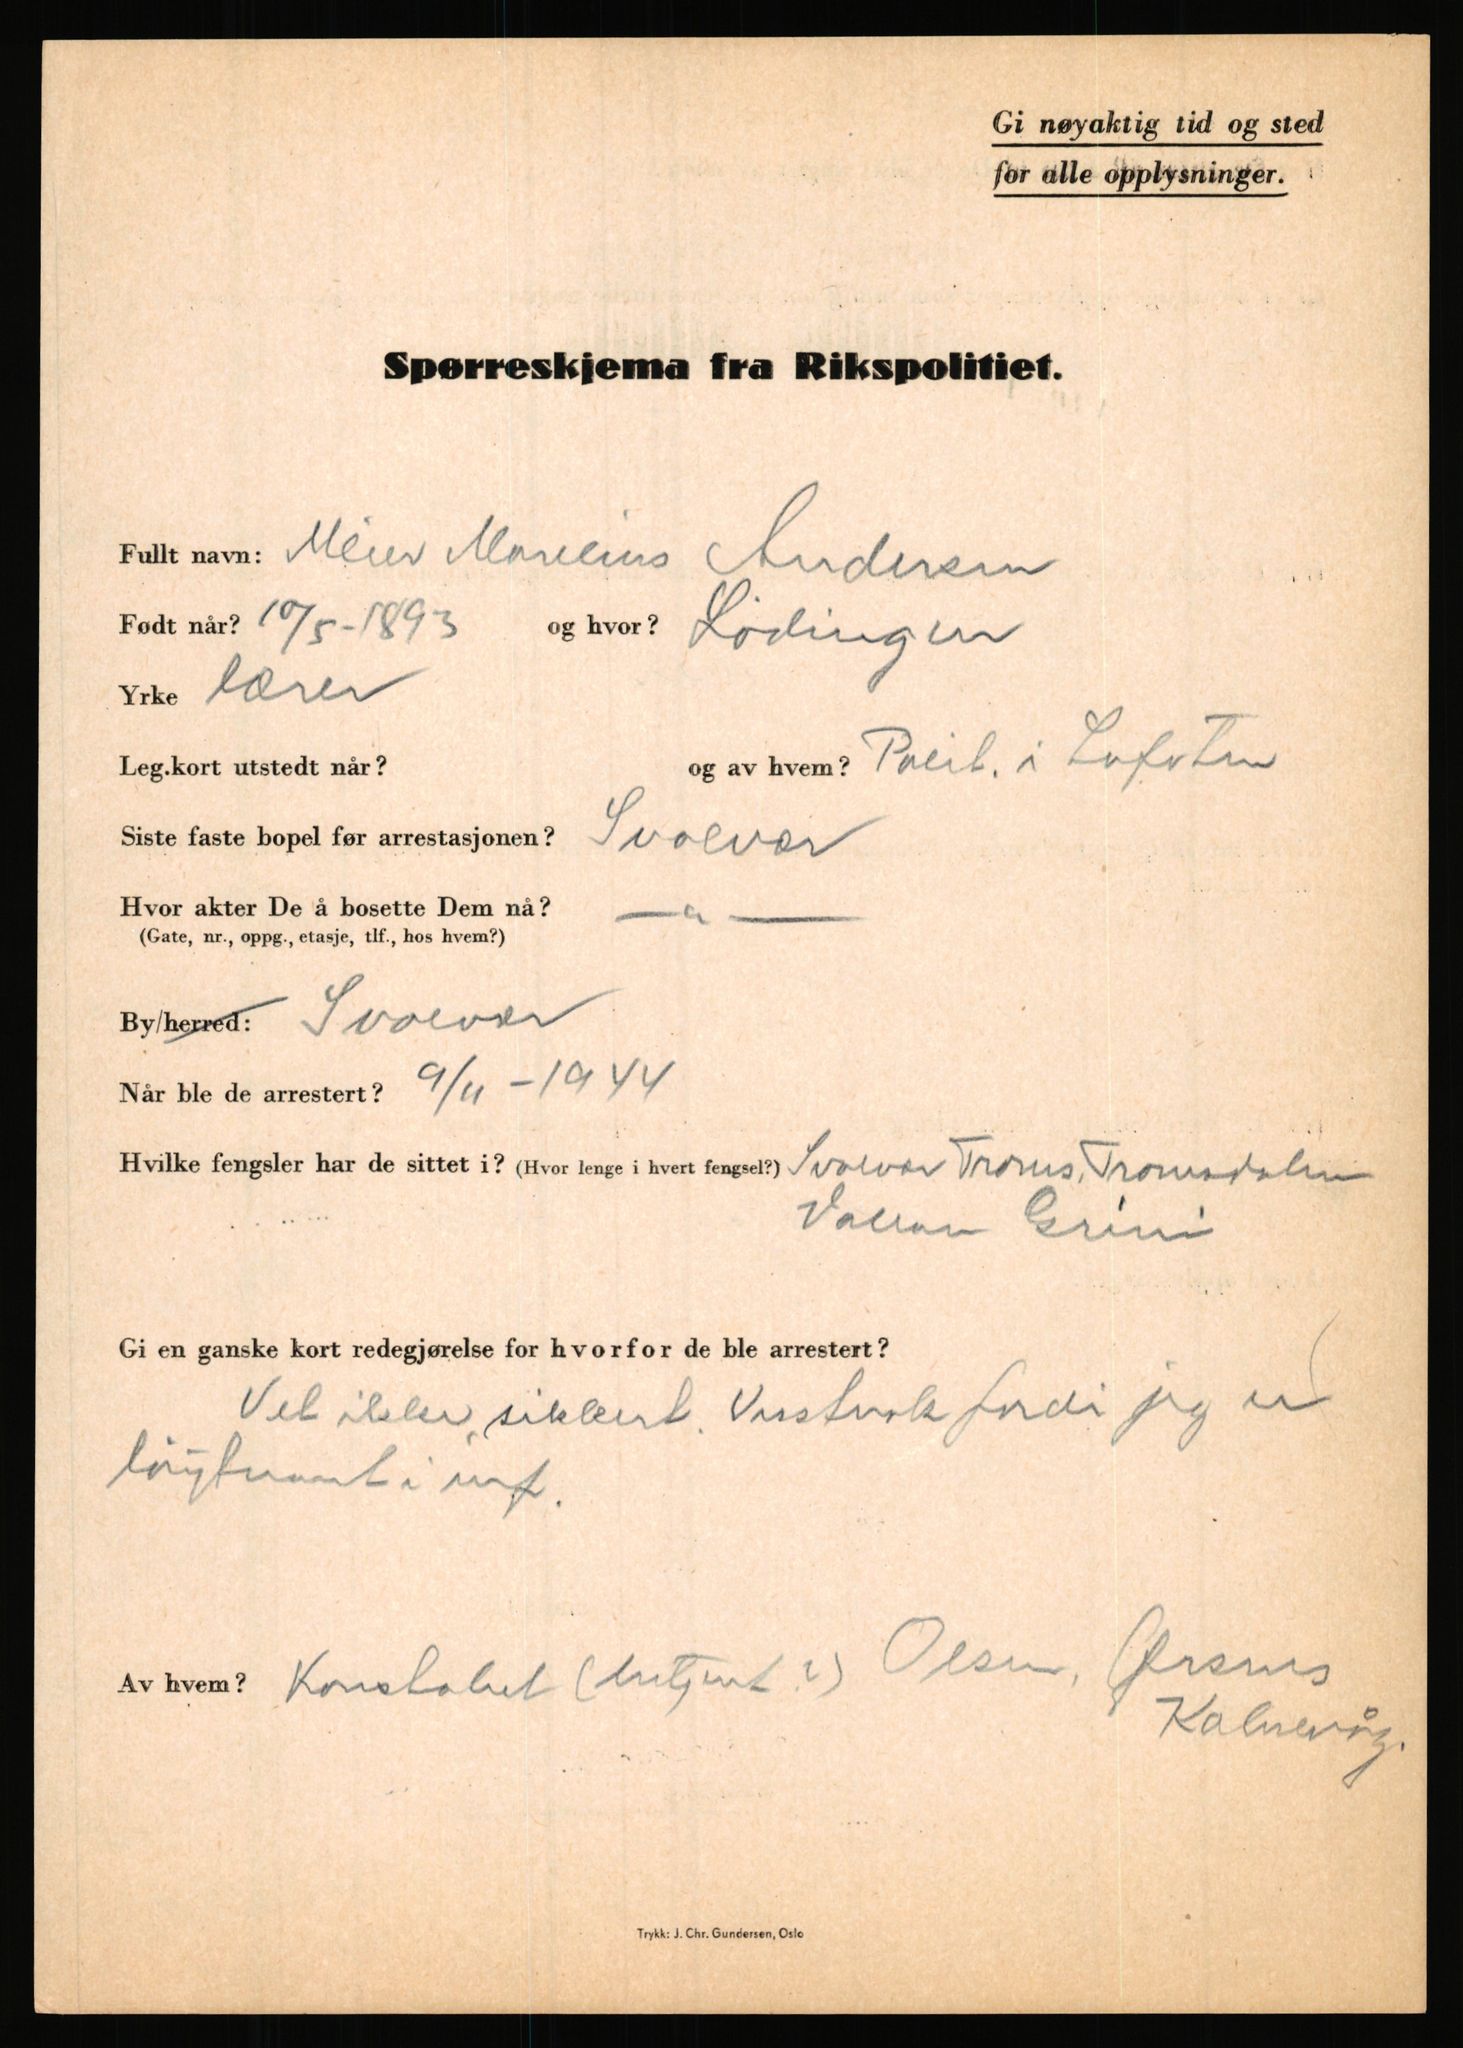 Gi nøyaktig tid og sted
for alle opplysninger.
Spørreskjema fra Rikspolitiet.
Fullt navn: Meier Marelius Andersen
Født når? 10/5-1893 og hvor? Lödingen
Yrke lærer
Leg.kort utstedt når? og av hvem? Polit. i Lofoten
Siste faste bopel før arrestasjonen? Svolvær
Hvor akter De å bosette Dem nå? — " —
(Gate, nr., oppg., etasje, tlf., hos hvem?)
By/herred: Svolvær
Når ble de arrestert? 9/11 - 1944
Hvilke fengsler har de sittet i? (Hvor lenge i hvert fengsel?) Svolvær Troms, Tromsdalen
Vollan Grini
Gi en ganske kort redegjørelse for hvorfor de ble arrestert?
Vet ikke sikkert. Visstnok fordi jeg er
löytnant i inf.
Av hvem? Konstabel (betjent?) Olsen,
Kalnevåg.
Trykk: J. Chr. Gundersen, Oslo